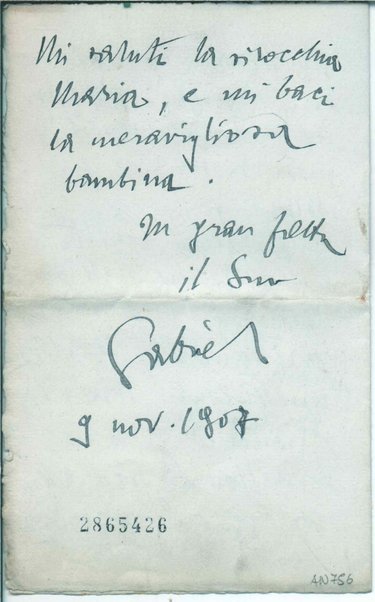 Mi saluti la sirocchia
Maria, e mi baci
la meravigliosa
bambina.
In gran fretta
il Suo
Gabriel
9 nov. 1907
2865426
AN 756